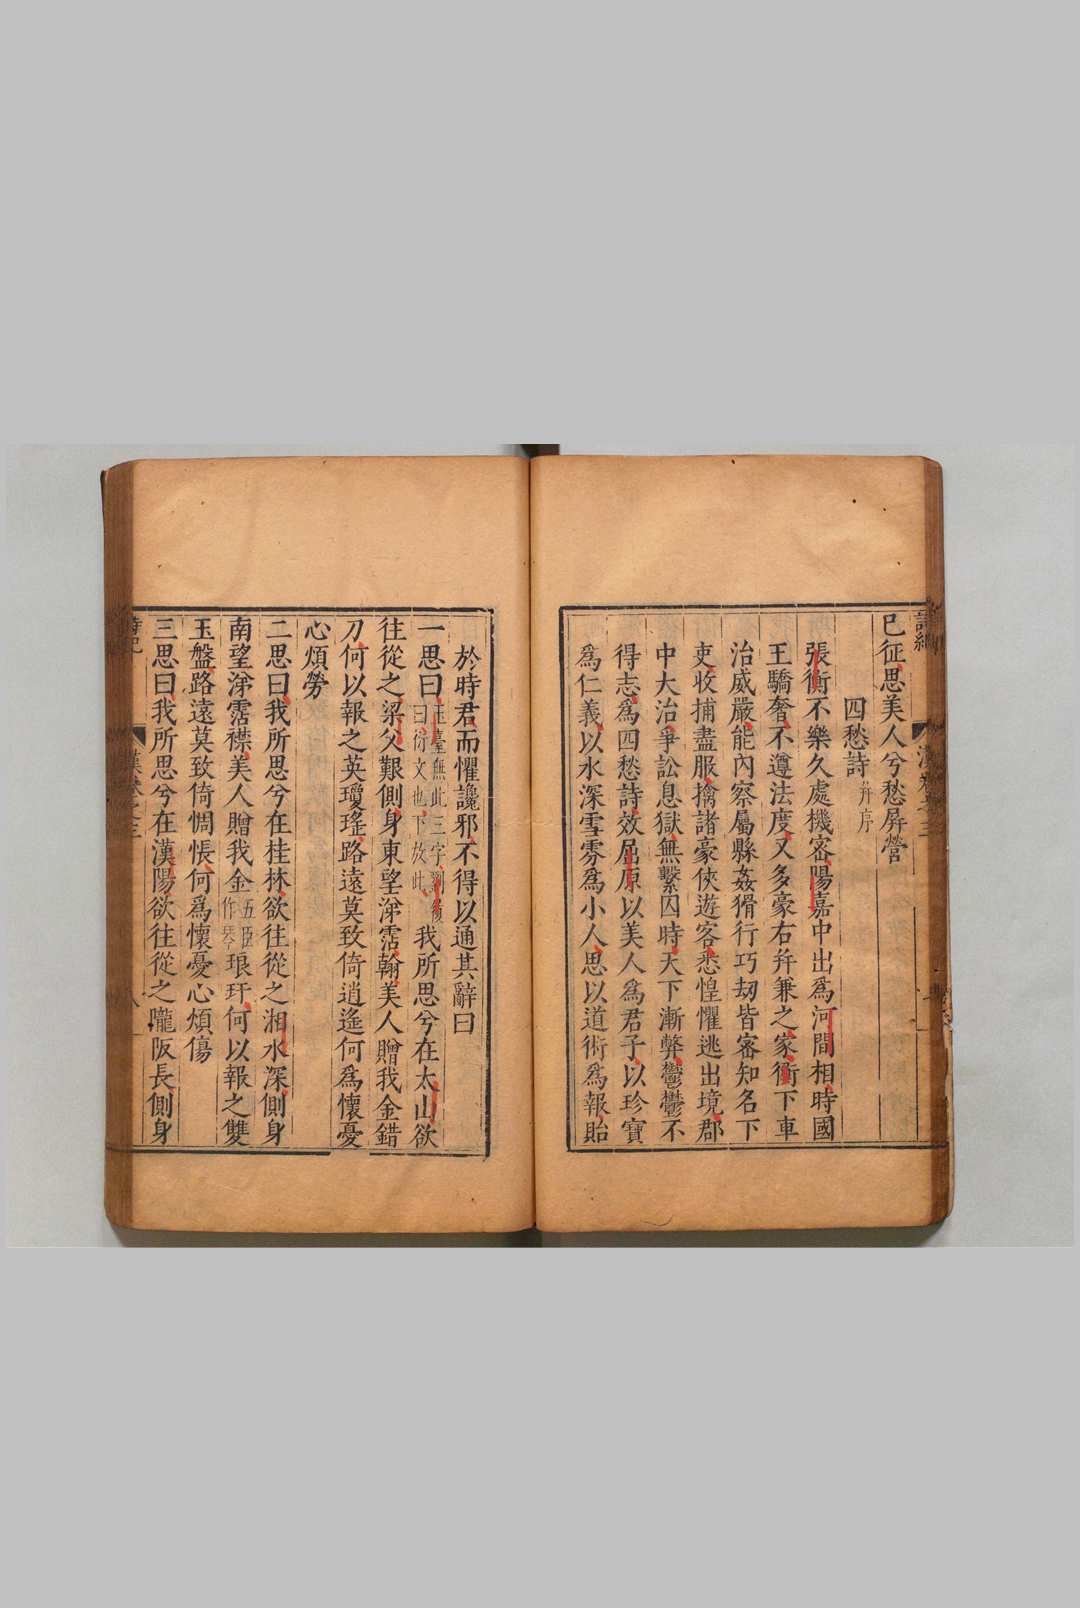 巳征思美人兮愁屏營
四愁詩并序
張衡不樂久處機密陽嘉中出爲河間相時國
王驕奢不遵法度又多豪右并兼之家衡下車
治威嚴能內察屬縣姦猾行巧劫皆密知名下
吏收捕盡服擒諸豪俠遊客悉惶懼逃出境郡
中大治爭訟息獄無繫囚時天下漸弊鬱鬱不
得志爲四愁詩效屈原以美人爲君子以珍寶
爲仁義以水深雪雰爲小人思以道術爲報貽
於時君而懼讒邪不得以通其辭曰
一思曰玉臺無此三字劉履曰衍文也下放此我所思兮在太山欲
往從之梁父艱側身東望涕霑翰美人贈我金錯
刀何以報之英瓊瑤路遠莫致倚逍遙何爲懷憂
心煩勞
二思曰我所思兮在桂林欲往從之湘水深側身
南望涕霑襟美人贈我金五臣作琴琅玕何以報之雙
玉盤路遠莫致倚惆悵何爲懷憂心煩傷
三思曰我所思兮在漢陽欲往從之隴阪長側身
詩紀
漢卷之三
八